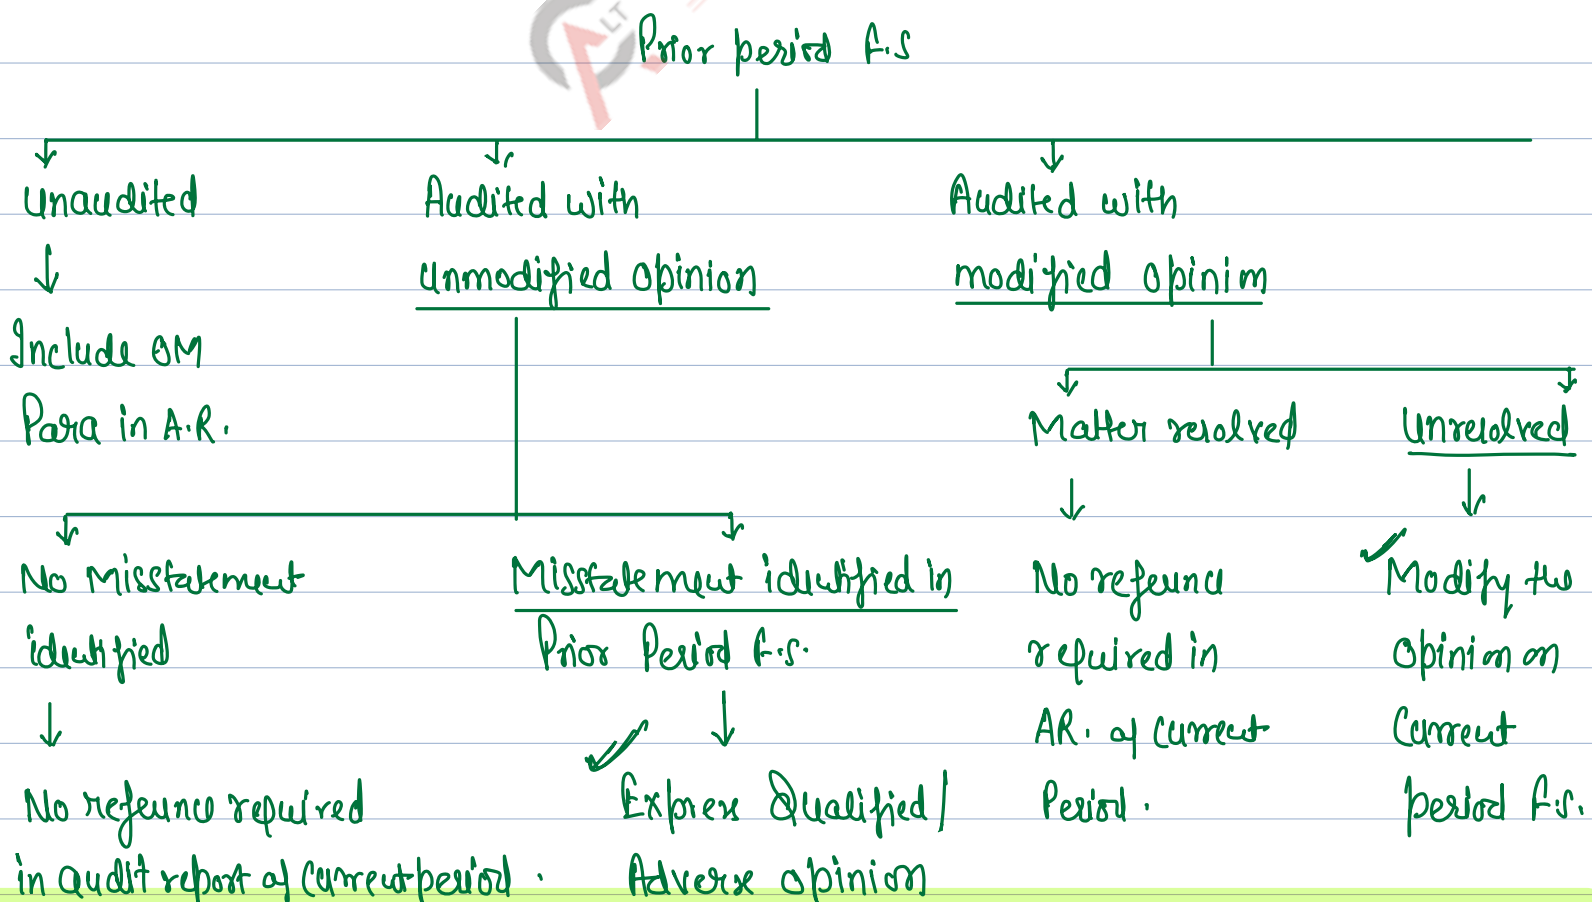 LT
Prior period F.S
Unaudited
Include OM
Para in A.R.
Audited with
unmodified opinion
No Misstatement
identified
No reference required
in audit report of current period.
Misstatement identified in
Prior Period F.S.
Express Qualified/
Adverse opinion
Audited with
modified opinion
Matter resolved
No reference
required in
AR. of current
Period.
Unresolved
Modify the
opinion on
Current
period F.S.